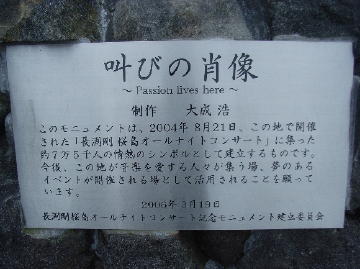 叫びの肖像
～ Passion lives here ～
制作　大成 浩
このモニュメントは、2004年8月21日、この地で開催
された「長渕剛桜島オールナイトコンサート」に集った
約7万5千人の情熱のシンボルとして建立するものです。
今後、この地が音楽を愛する人々が集う場、夢のある
イベントが開催される場として活用されることを願って
います。
2006年3月19日
長渕剛桜島オールナイトコンサート記念モニュメント建立委員会